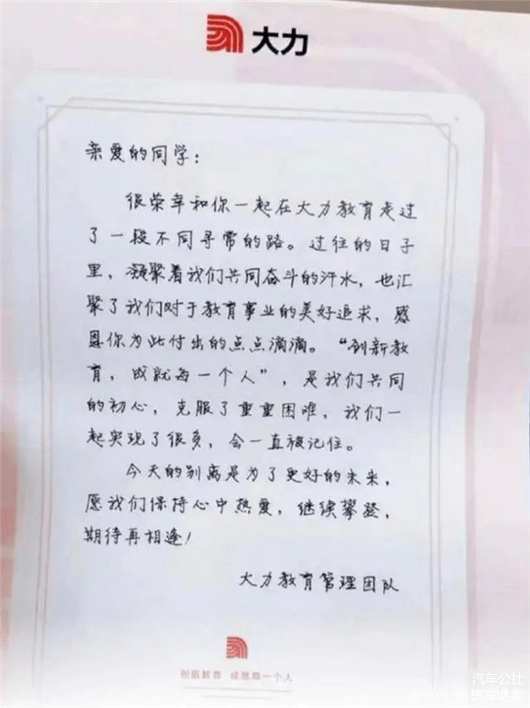 大力
亲爱的同学：
很荣幸和你一起在大力教育走过
了一段不同寻常的路。过往的日子
里，凝聚着我们共同奋斗的汗水，也汇
聚了我们对于教育事业的美好追求，感
恩你为此付出的点点滴滴。“创新教
育，成就每一个人”，是我们共同
的初心，克服了重重困难，我们一
起实现了很多，会一直被记住。
今天的别离是为了更好的未来，
愿我们保持心中热爱，继续攀登，
期待再相逢！
大力教育管理团队
创新教育 成就每一个人
汽车公社